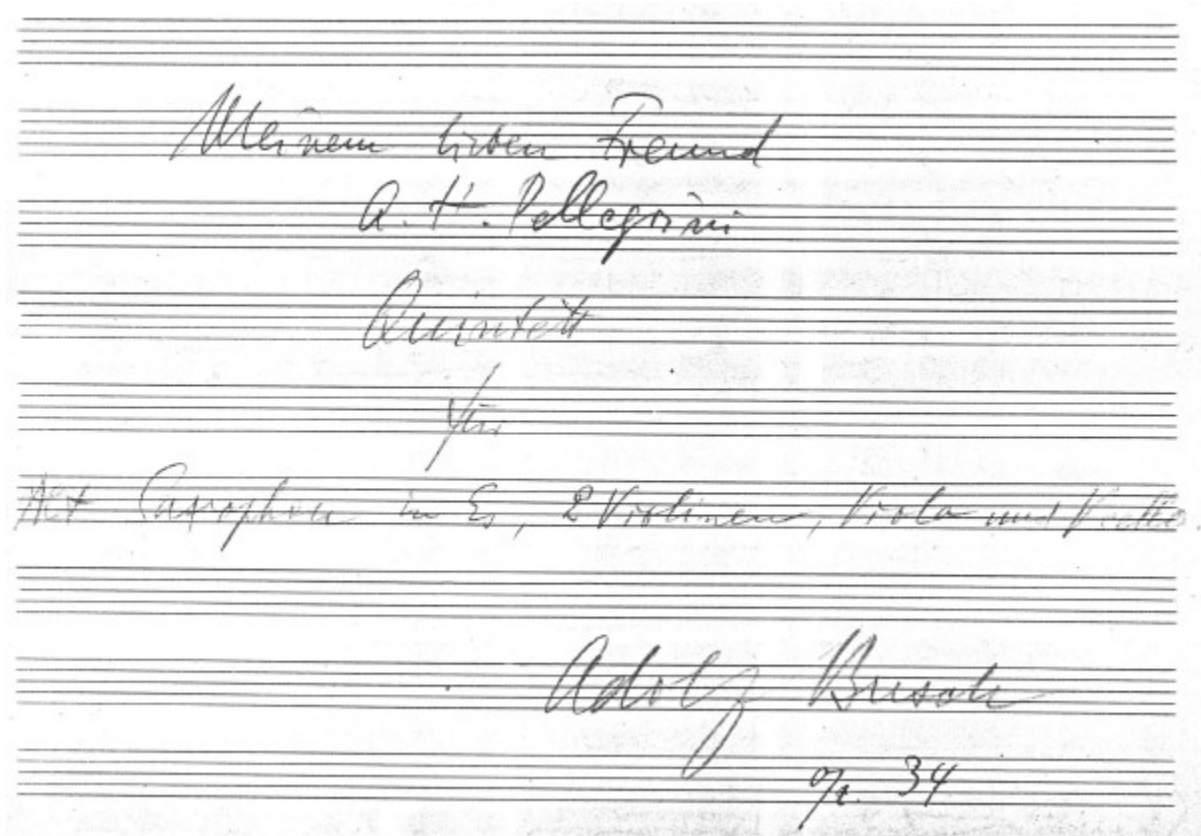 Meinem lieben Freund
A. H. Pellegrini
Quintett
für
Alt Saxophon in Es, 2 Violinen, Viola und Vcello.
Adolf Busch
op. 34